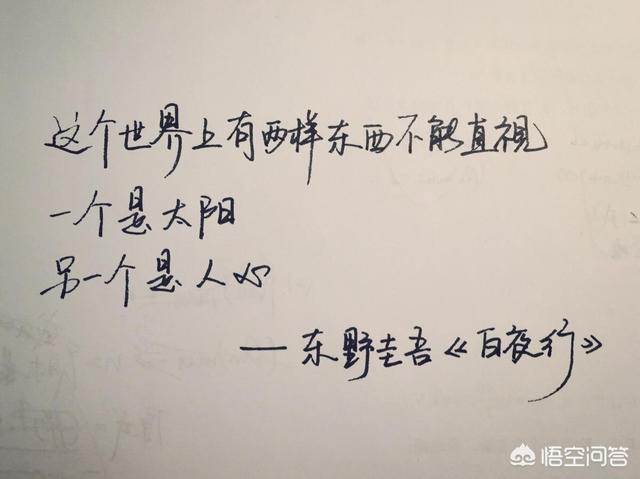 这个世界上有两样东西不能直视
一个是太阳
另一个是人心
——东野圭吾《白夜行》
悟空问答